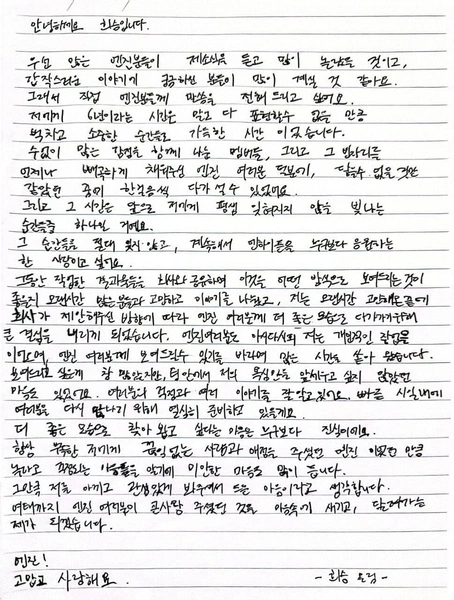 안녕하세요 희승입니다.
우선 많은 엔진분들이 제소식을 듣고 많이 놀라울 것이고,
갑작스러운 이야기에 궁금하신 분들이 많이 계실 것 같아요.
그래서 직접 엔진분들께 말씀을 전해 드리고 싶어요.
저에게 6년이라는 시간은 말로 다 표현할수 없을 만큼
벅차고 소중한 순간들로 가득한 시간 이었습니다.
수없이 많은 감정을 함께 나눈 멤버들, 그리고 그 빈자리를
언제나 빼곡하게 채워주신 엔진 여러분 덕분에, 닿을수 없을 것만
같았던 꿈에 한걸음씩 다가설 수 있었어요.
그리고 그 시간은 앞으로 저에게 평생 잊혀지지 않을 빛나는
순간들중 하나일 거에요.
그 순간들을 절대 잊지 않고, 계속해서 멤버들을 누구보다 응원하는
한 사람이고 싶어요.
그동안 작업한 결과물들을 회사와 공유하며 이것을 어떤 방식으로 보여드리는것이
좋을지 오랜시간 많은분들과 고민하고 이야기를 나눴고, 저는 오랜시간 고민해온 끝에
회사가 제안해주신 방향에 따라 엔진 여러분께 더 좋은 모습으로 다가가기위해
큰 결심을 내리게 되었습니다. 엔진여러분도 아시다시피 저는 개인적인 작업을
이어오며, 엔진 여러분께 보여드릴수 있기를 바라며 많은 시간을 쏟아 왔습니다.
보여드리고 싶은게 참 많았지만, 팀 안에서 저의 욕심만을 앞세우고 싶지 않았던
마음도 있었어요. 여러분의 걱정과 여러 이야기를 잘 알고있어요. 빠른 시일내에
여러분을 다시 만나기 위해 열심히 준비하고 있을게요.
더 좋은 모습으로 찾아 뵙고 싶다는 마음은 누구보다 진심이에요.
항상 부족한 저에게 끊임없는 사랑과 애정을 주셨던 엔진 이였던 만큼
놀라고 혼란스러운 상황들을 안겨드려 미안한 마음도 많이 듭니다.
그만큼 저를 아끼고 관심있게 봐주셔서 드는 마음이라고 생각합니다.
여태까지 엔진 여러분이 큰사랑 주셨던 것을 마음속에 새기고, 보답해가는
제가 되겠습니다.
엔진!
고맙고 사랑해요.
- 희승 드림 -